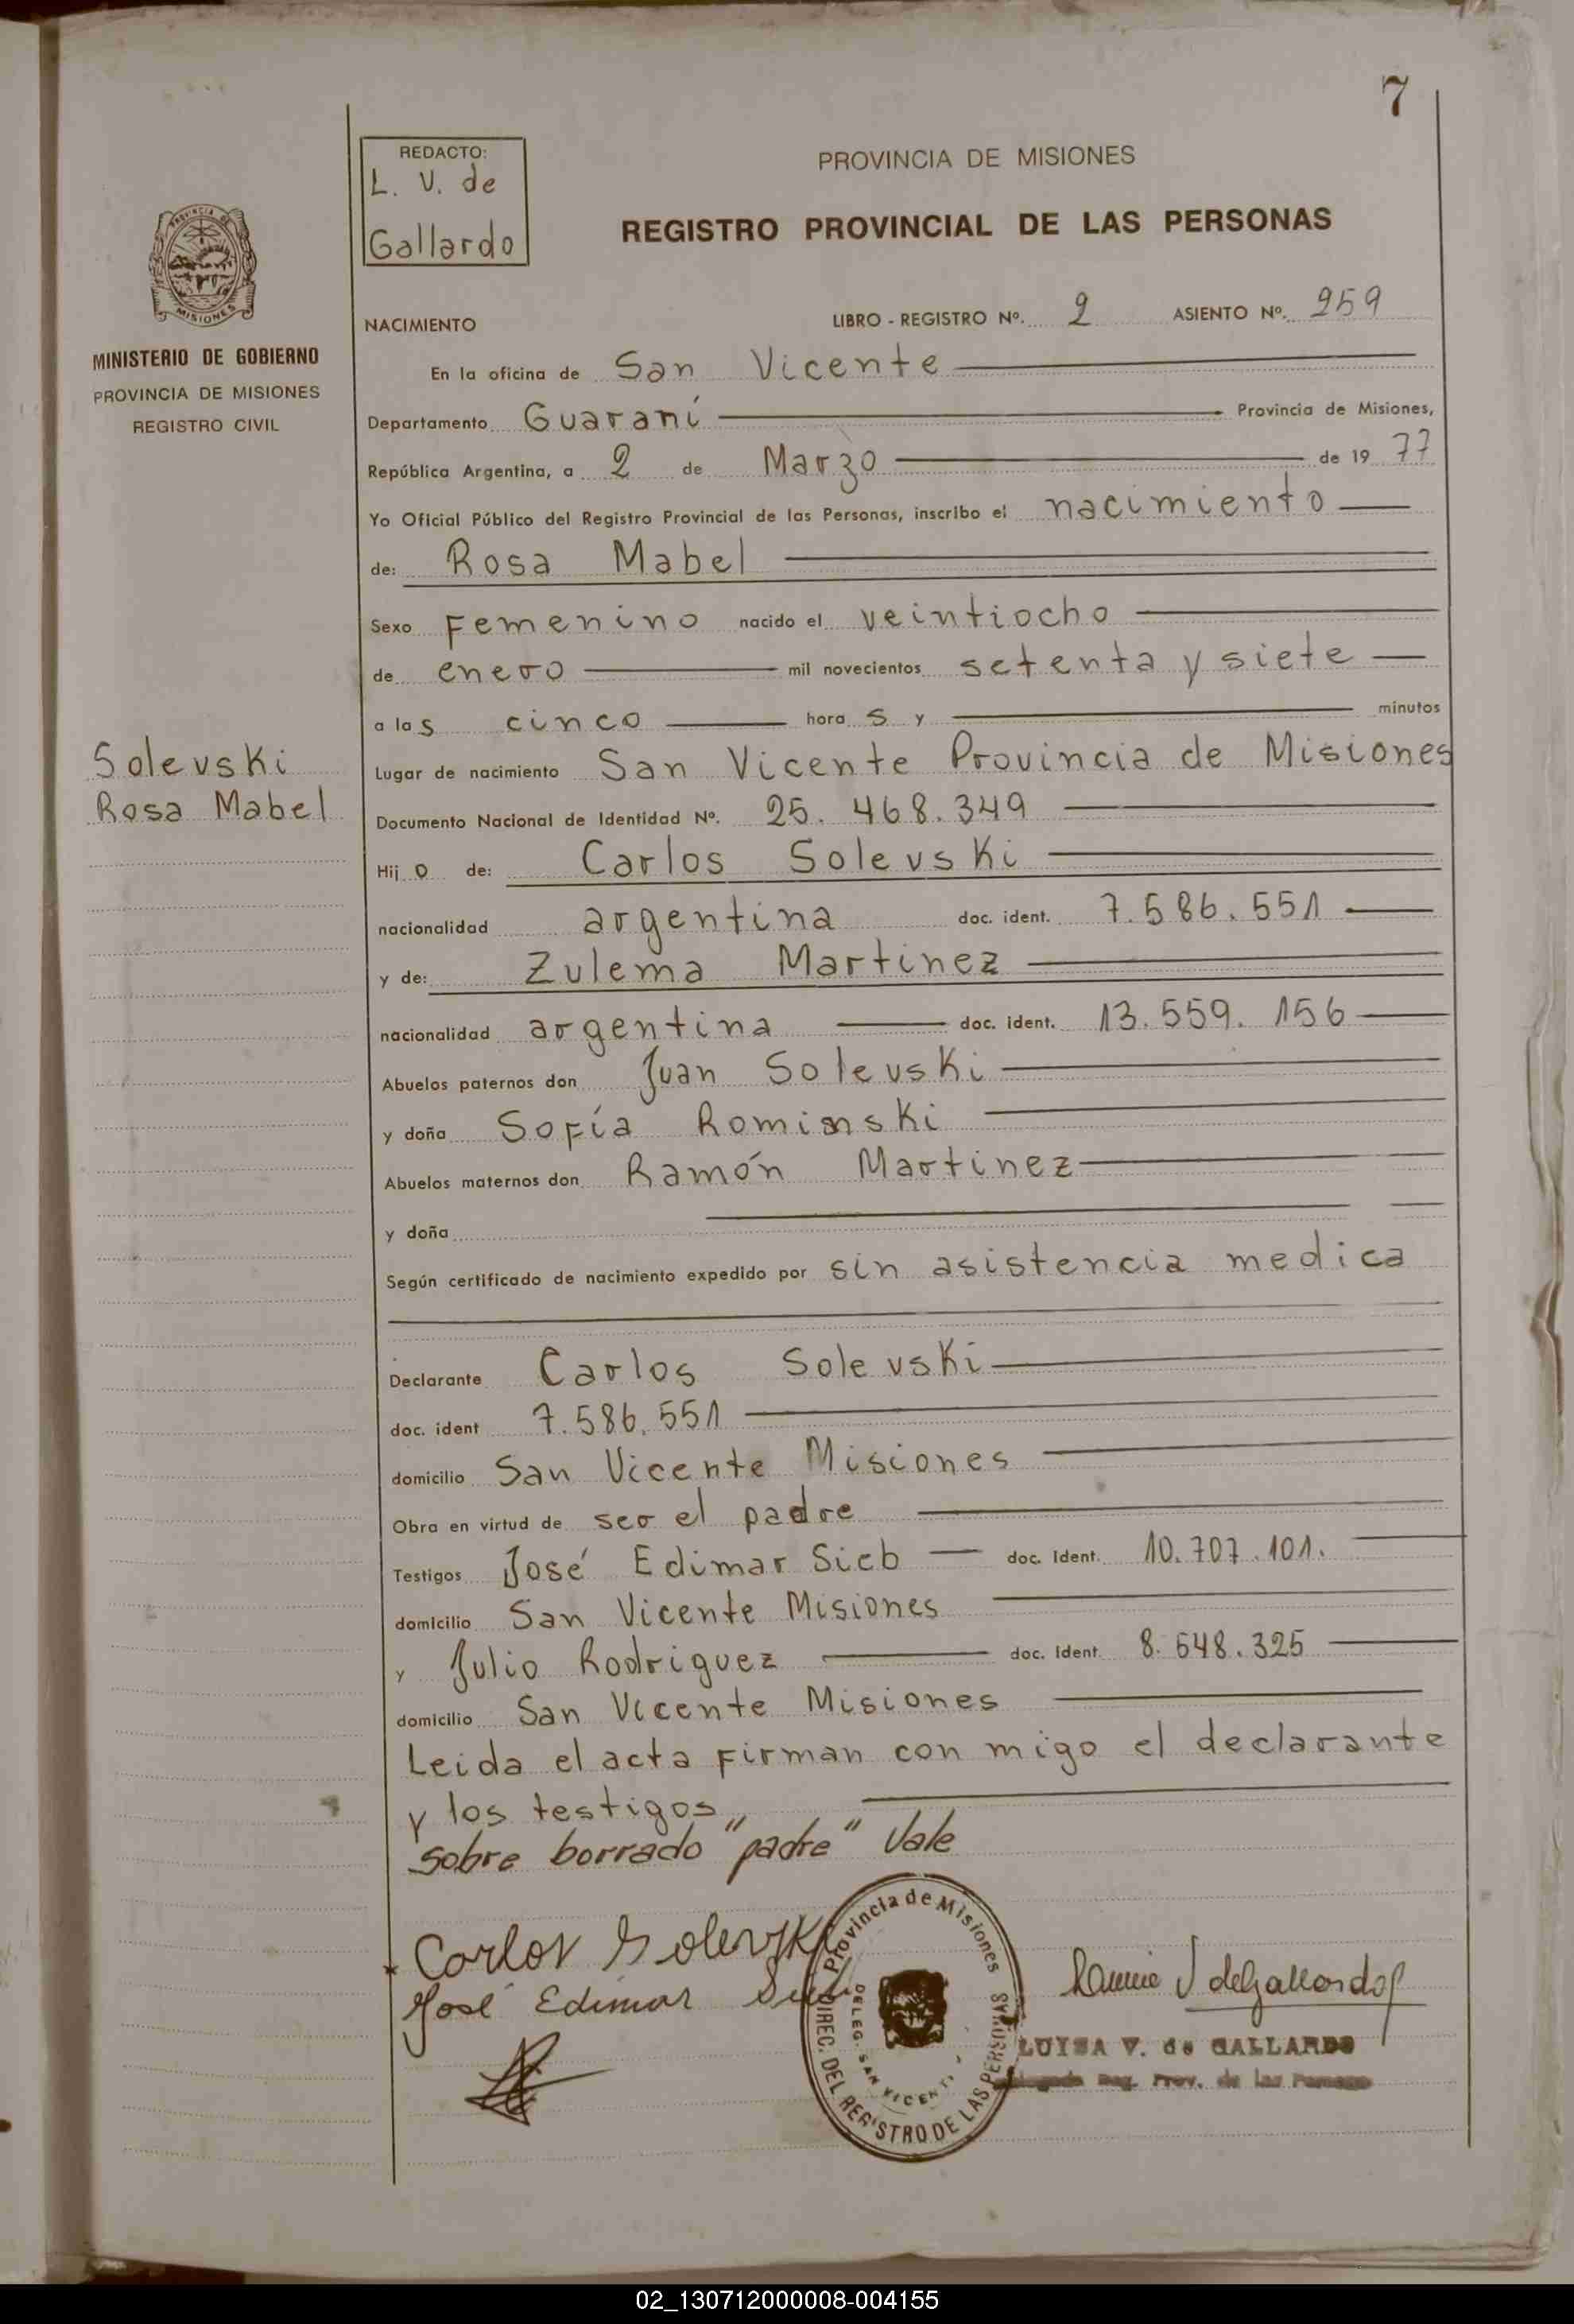 7
REDACTO:
L. V. de
Gallardo
PROVINCIA DE MISIONES
REGISTRO PROVINCIAL DE LAS PERSONAS
PROVINCIA DE
MISIONES
MINISTERIO DE GOBIERNO
PROVINCIA DE MISIONES
REGISTRO CIVIL
NACIMIENTO LIBRO - REGISTRO Nº. 2 ASIENTO Nº. 259
En la oficina de San Vicente
Departamento Guaraní Provincia de Misiones,
República Argentina, a 2 de Marzo de 19 77
Yo Oficial Público del Registro Provincial de las Personas, inscribo el nacimiento
de: Rosa Mabel
Sexo Femenino nacido el veintiocho
de enero mil novecientos setenta y siete
a las cinco horas y minutos
Solevski
Rosa Mabel
Lugar de nacimiento San Vicente Provincia de Misiones
Documento Nacional de Identidad Nº. 25.468.349
Hijo de: Carlos Solevski
nacionalidad argentina doc. ident. 7.586.551
y de: Zulema Martinez
nacionalidad argentina doc. ident. 13.559.156
Abuelos paternos don Juan Solevski
y doña Sofía Rominski
Abuelos maternos don Ramón Martinez
y doña
Según certificado de nacimiento expedido por sin asistencia medica
Declarante Carlos Solevski
doc. ident 7.586.551
domicilio San Vicente Misiones
Obra en virtud de ser el padre
Testigos José Edimar Sieb doc. Ident. 10.707.101.
domicilio San Vicente Misiones
y Julio Rodriguez doc. Ident. 8.648.325
domicilio San Vicente Misiones
Leida el acta firman con migo el declarante
y los testigos
sobre borrado "padre" Vale
Carlos Solevski
José Edimar Sieb
Provincia de Misiones
DIREC. DEL REGISTRO DE LAS PERSONAS
DELEG. SAN VICENTE
de Gallardo
LUISA V. de GALLARDO
Reg. Prov. de las Personas
02_130712000008-004155